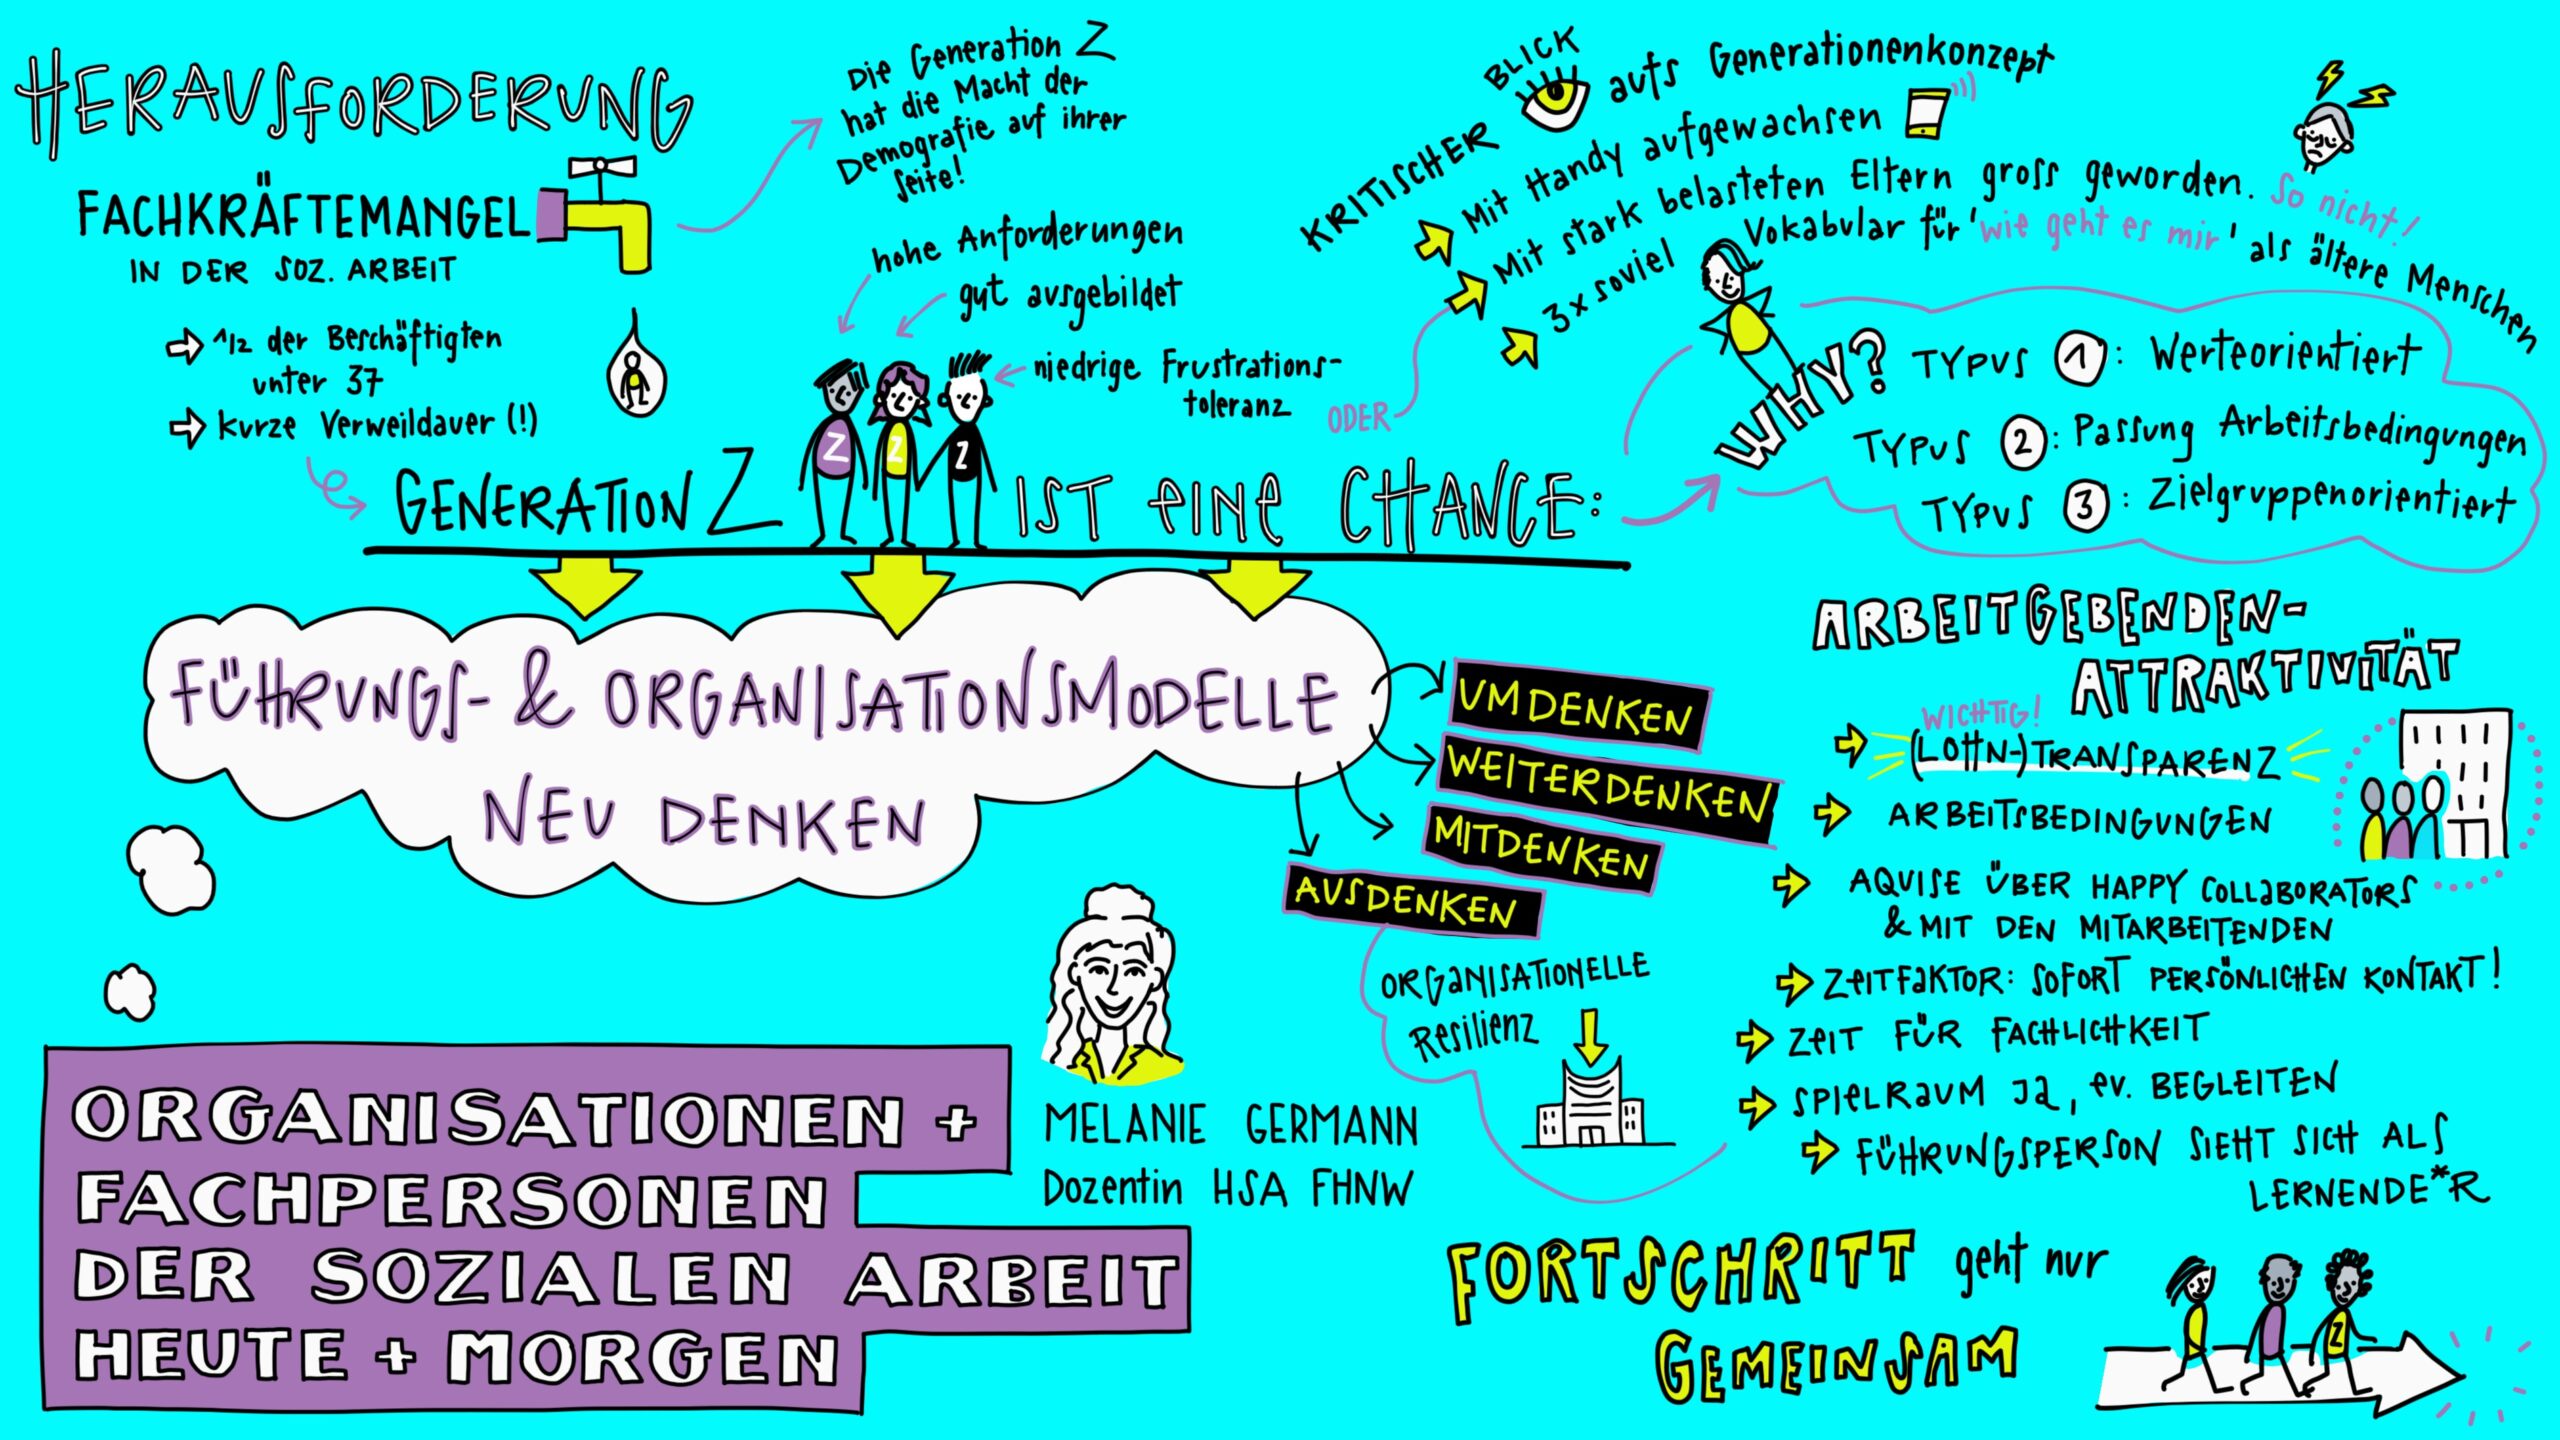 HERAUSFORDERUNG
FACHKRÄFTEMANGEL
IN DER SOZ. ARBEIT
1/2 der Beschäftigten
unter 37
kurze Verweildauer (!)
Die Generation Z
hat die Macht der
Demografie auf ihrer
Seite!
hohe Anforderungen
gut ausgebildet
niedrige Frustrations-
toleranz
GENERATION Z IST EINE CHANCE:
Z
Z
Z
KRITISCHER BLICK aufs Generationenkonzept
Mit Handy aufgewachsen
Mit stark belasteten Eltern gross geworden. So nicht!
ODER
3x soviel Vokabular für 'wie geht es mir' als ältere Menschen
WHY?
TYPUS 1: Werteorientiert
TYPUS 2: Passung Arbeitsbedingungen
TYPUS 3: Zielgruppenorientiert
FÜHRUNGS- & ORGANISATIONSMODELLE
NEU DENKEN
UMDENKEN
WEITERDENKEN
MITDENKEN
AUSDENKEN
ORGANISATIONELLE
Resilienz
ARBEITGEBENDEN-
ATTRAKTIVITÄT
WICHTIG!
(LOHN-)TRANSPARENZ
ARBEITSBEDINGUNGEN
AQUISE ÜBER HAPPY COLLABORATORS
& MIT DEN MITARBEITENDEN
ZEITFAKTOR: SOFORT PERSÖNLICHEN KONTAKT!
ZEIT FÜR FACHLICHKEIT
SPIELRAUM JA, ev. BEGLEITEN
FÜHRUNGSPERSON SIEHT SICH ALS
LERNENDE*R
MELANIE GERMANN
Dozentin HSA FHNW
ORGANISATIONEN +
FACHPERSONEN
DER SOZIALEN ARBEIT
HEUTE + MORGEN
FORTSCHRITT geht nur
GEMEINSAM
Z